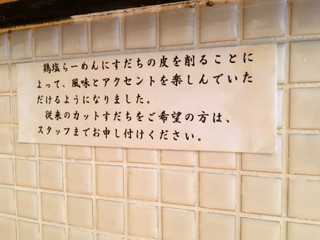 鶏塩らーめんにすだちの皮を削ることに
よって、風味とアクセントを楽しんでいた
だけるようになりました。
従来のカットすだちをご希望の方は、
スタッフまでお申し付けください。